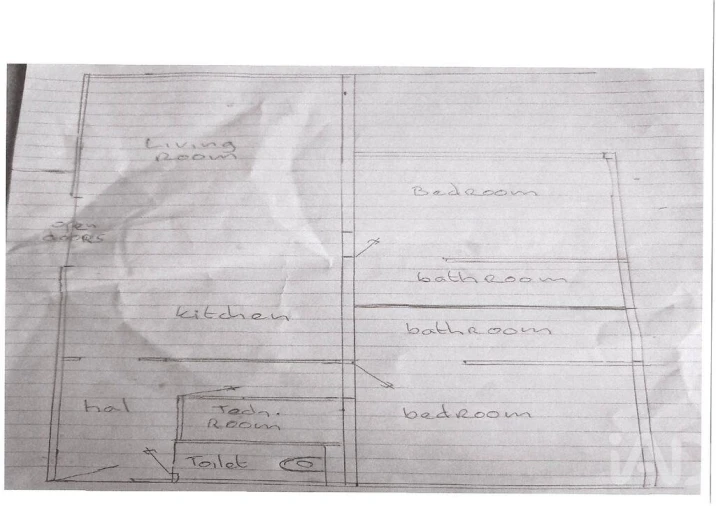 Living
Room
Bedroom
Open
doors
bathroom
kitchen
bathroom
hal
Techn.
Room
bedroom
Toilet